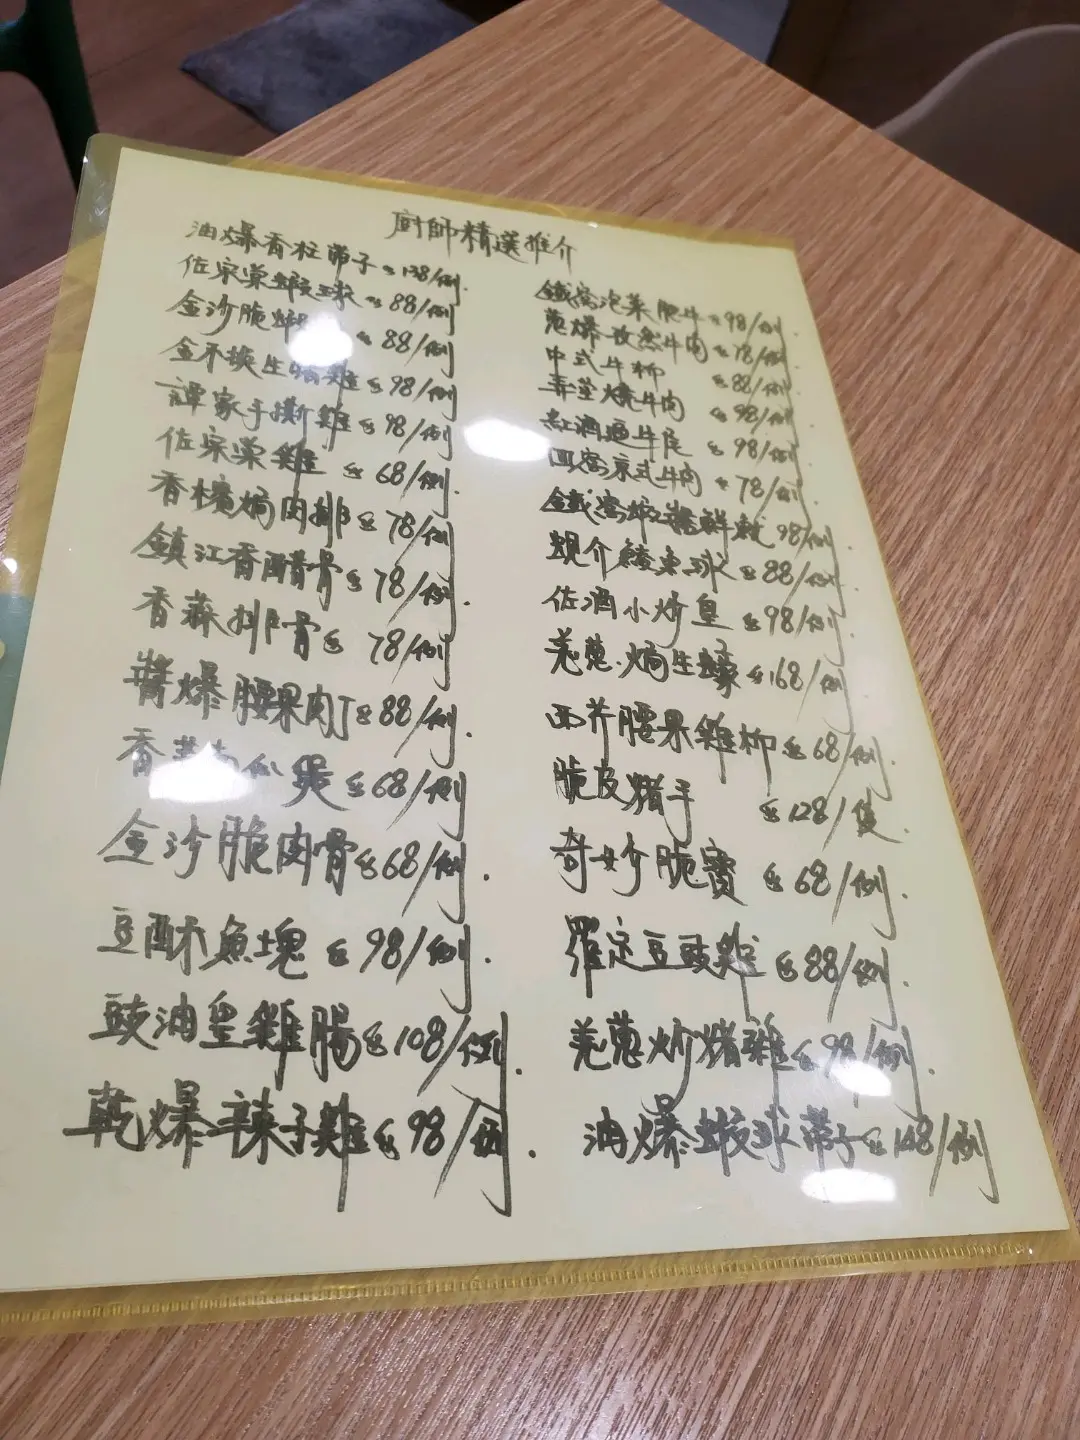 廚師精選推介
油爆香柱帶子 138/例.
佐宗棠蝦球 88/例
金沙脆蝦 88/例
金不換生 雞 98/例
譚家手撕雞 98/例
佐宗棠雞 68/例.
香檳焗肉排 78/例
鎮江香醋骨 78/例.
香蒜排骨 78/例
醬爆腰果肉丁 88/例.
香 煲 68/例
金沙脆肉骨 68/例.
豆酥魚塊 98/例.
豉油皇雞腸 108/例.
乾爆辣子雞 98/例.
鐵窩泡菜肥牛 98/例.
蔥爆孜然牛肉 78/例.
中式牛柳 88/例.
燒牛肉 98/例.
紅酒 牛尾 98/例.
京式牛肉 78/例.
鐵窩 鮮魷 98/例.
蜆介鯪魚球 88/例.
佐酒小炒皇 98/例.
羌蔥焗生蠔 168/例.
西芹腰果雞柳 68/例.
脆皮豬手 128/隻.
奇妙脆寶 68/例.
羅定豆豉雞 88/例.
羌蔥炒豬雜 98/例.
油爆蝦球帶子 148/例